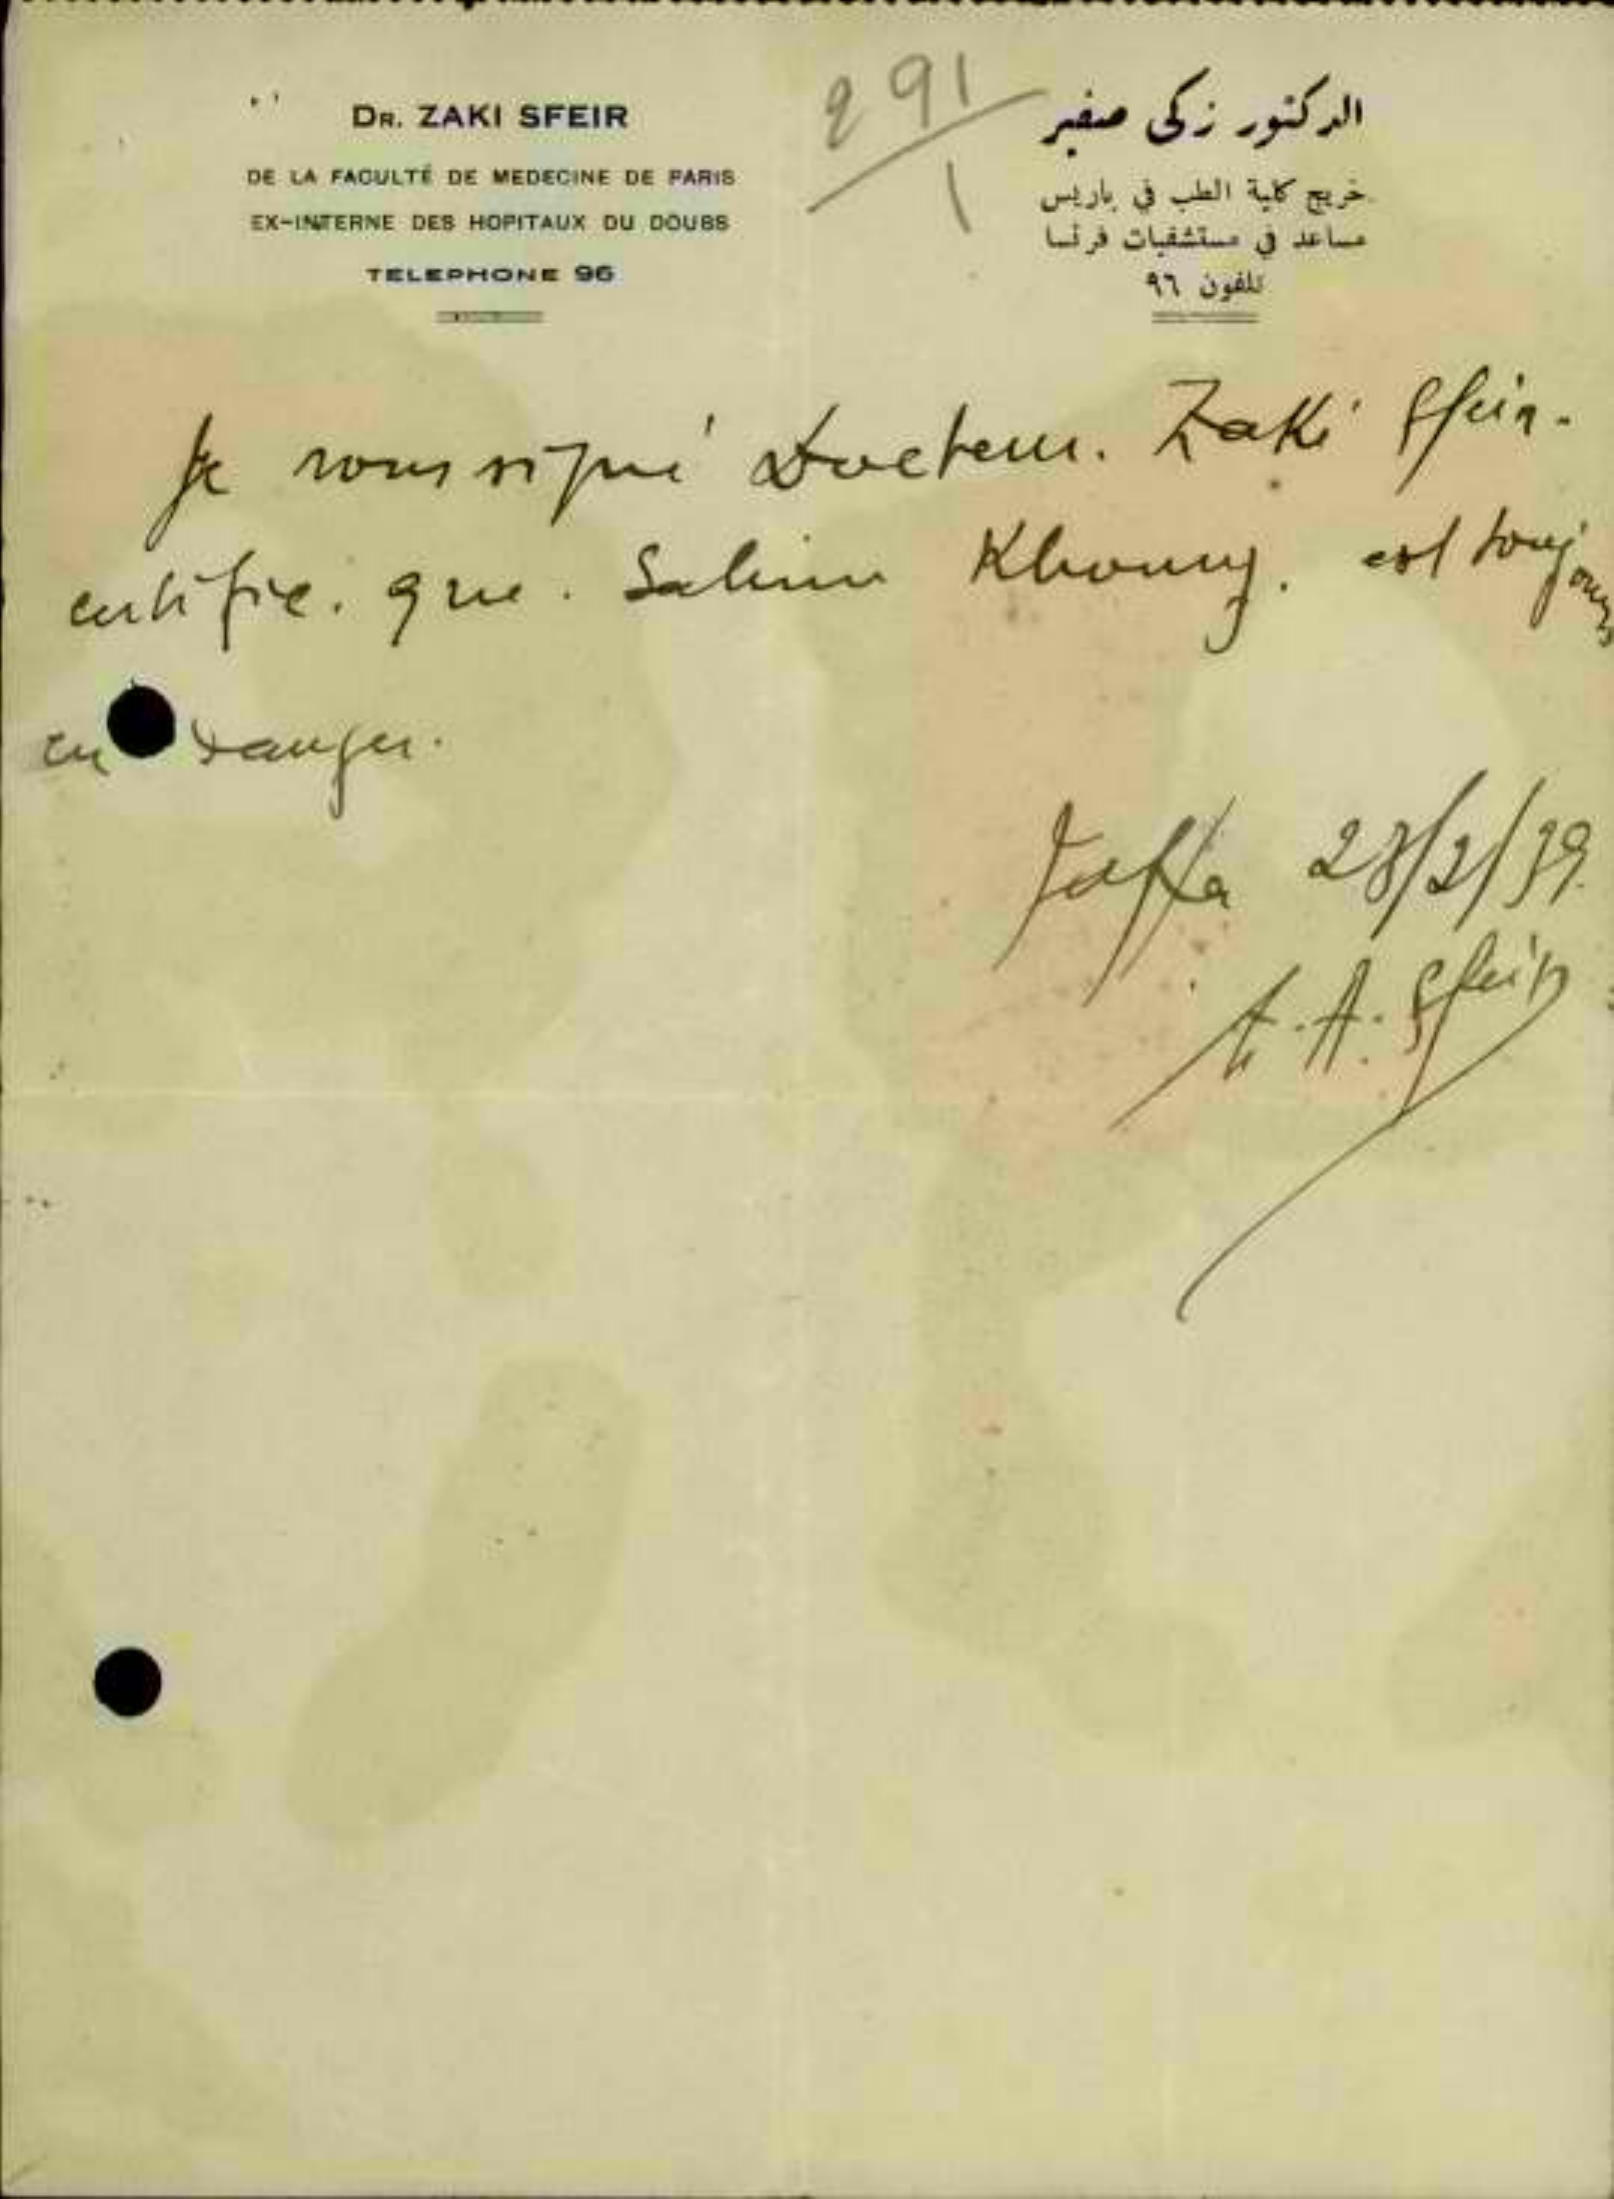 DR. ZAKI SFEIR
DE LA FACULTÉ DE MEDECINE DE PARIS
EX-INTERNE DES HOPITAUX DU DOUBS
TELEPHONE 96
291
1
الدكتور زكى صفير
خريج كلية الطب في باريس
مساعد في مستشفيات فرنسا
تلفون ٩٦
Je soussigné Docteur. Zaki Sfeir.
certifie. que. Salim Khoury. est toujours
en danger.
Jaffa 28/2/39.
Z. A. Sfeir